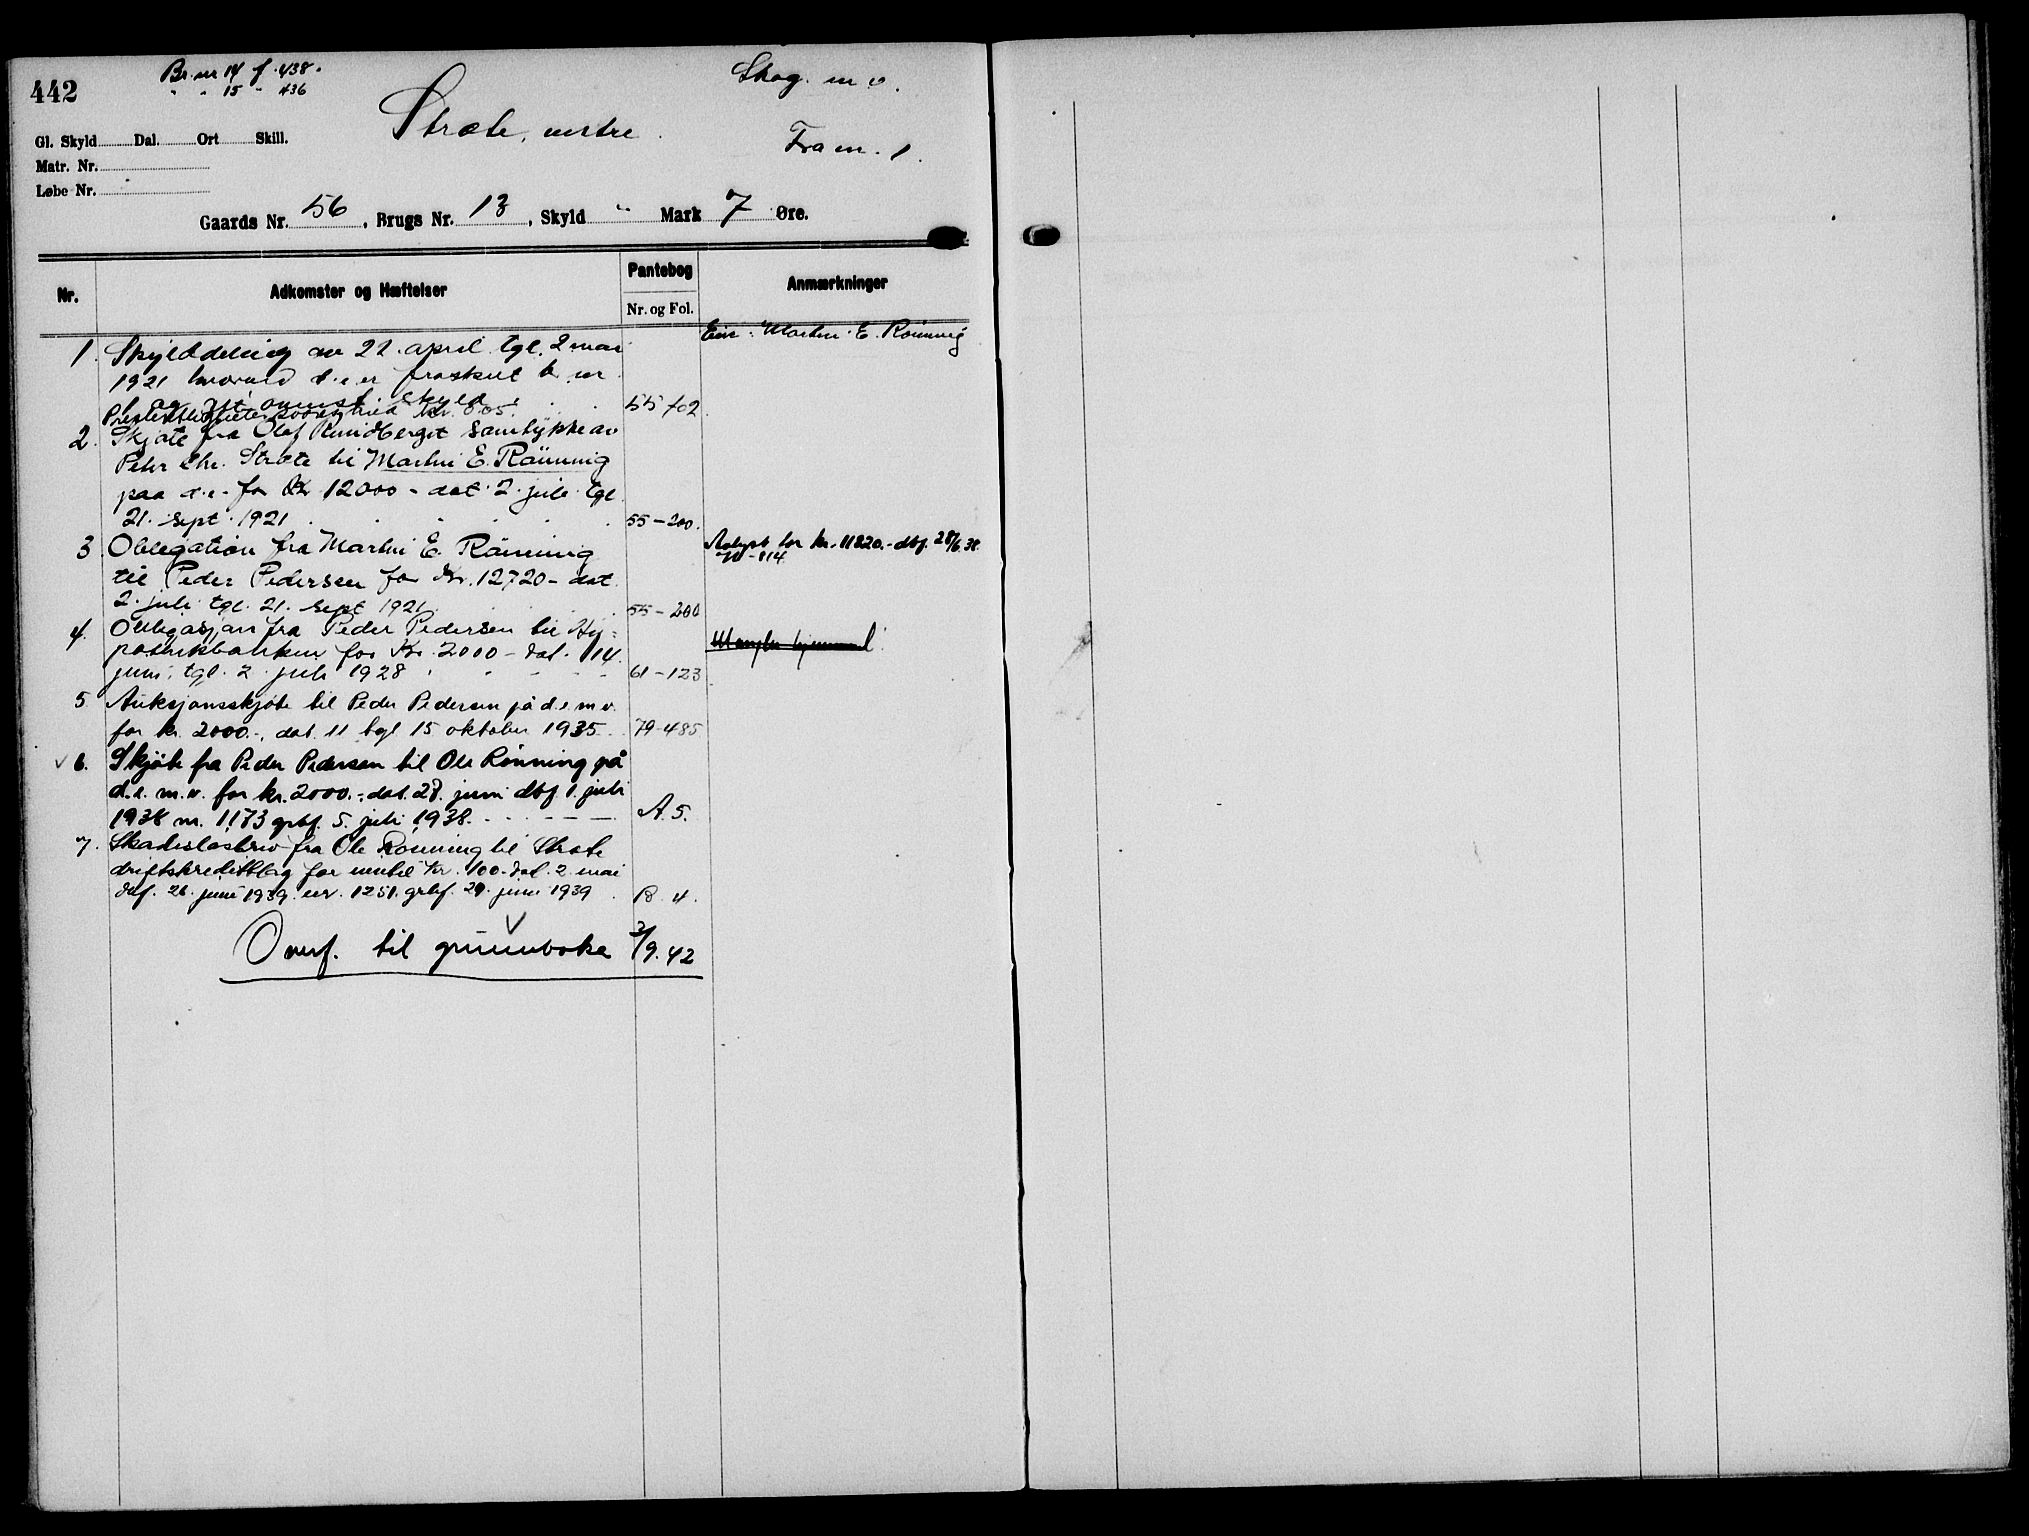 442
Br. nr 14 f. 438.
" " 15 " 436
Skog m v.
Stræte, vestre.
Fra nr. 1.
Gl. Skyld Dal. Ort Skill.
Matr. Nr.
Løbe Nr.
Gaards Nr. 56, Brugs Nr. 13, Skyld " Mark 7 Øre.
Nr. Adkomster og Hæftelser Pantebog Anmærkninger
Nr. og Fol.
Eier: Martin E. Rønning
1. Skylddeling av 22. april tgl. 2 mai
1921 hvorved d. e. er fraskilt br. nr
1 og git anmerket skyld
kr. 805. 55-102.
2. Skjøte fra Olaf Rundberget samtykke av
Petr Chr. Stræte til Martin E. Rønning
paa d. e. for Kr 12000 - dat. 2. juli tgl.
21. sept. 1921 55-200.
3. Obligation fra Martin E. Rønning
til Peder Pedersen for Kr. 12720 - dat
2. juli tgl. 21. sept 1921. 55-200
Avlyst for kr. 11220.- dbf. 28/6 38.
114
4. Obligasjon fra Peder Pedersen til Hy-
potekbanken for Kr. 2000 - dat. 14.
juni, tgl. 2. juli 1928 61-123
Mangler hjemmel
5 Auksjonsskjøte til Peder Pedersen på d. e. m v.
for kr. 2000.-, dat. 11 tgl 15 oktober 1935. 79-485
6. Skjøte fra Peder Pedersen til Ole Rønning på
d. e. m. v. for kr. 2000.-, dat. 28. juni dbf. 1. juli
1938 nr. 1173 grbf. 5. juli 1938. A. 5.
7. Skadesløsbrev fra Ole Rønning til Stræte
driftskredittlag for inntil kr. 100.- dat. 2. mai
dbf. 26. juni 1939 nr. 1251. grbf. 29. juni 1939 B 4.
Overf. til grunnboka 3/9. 42